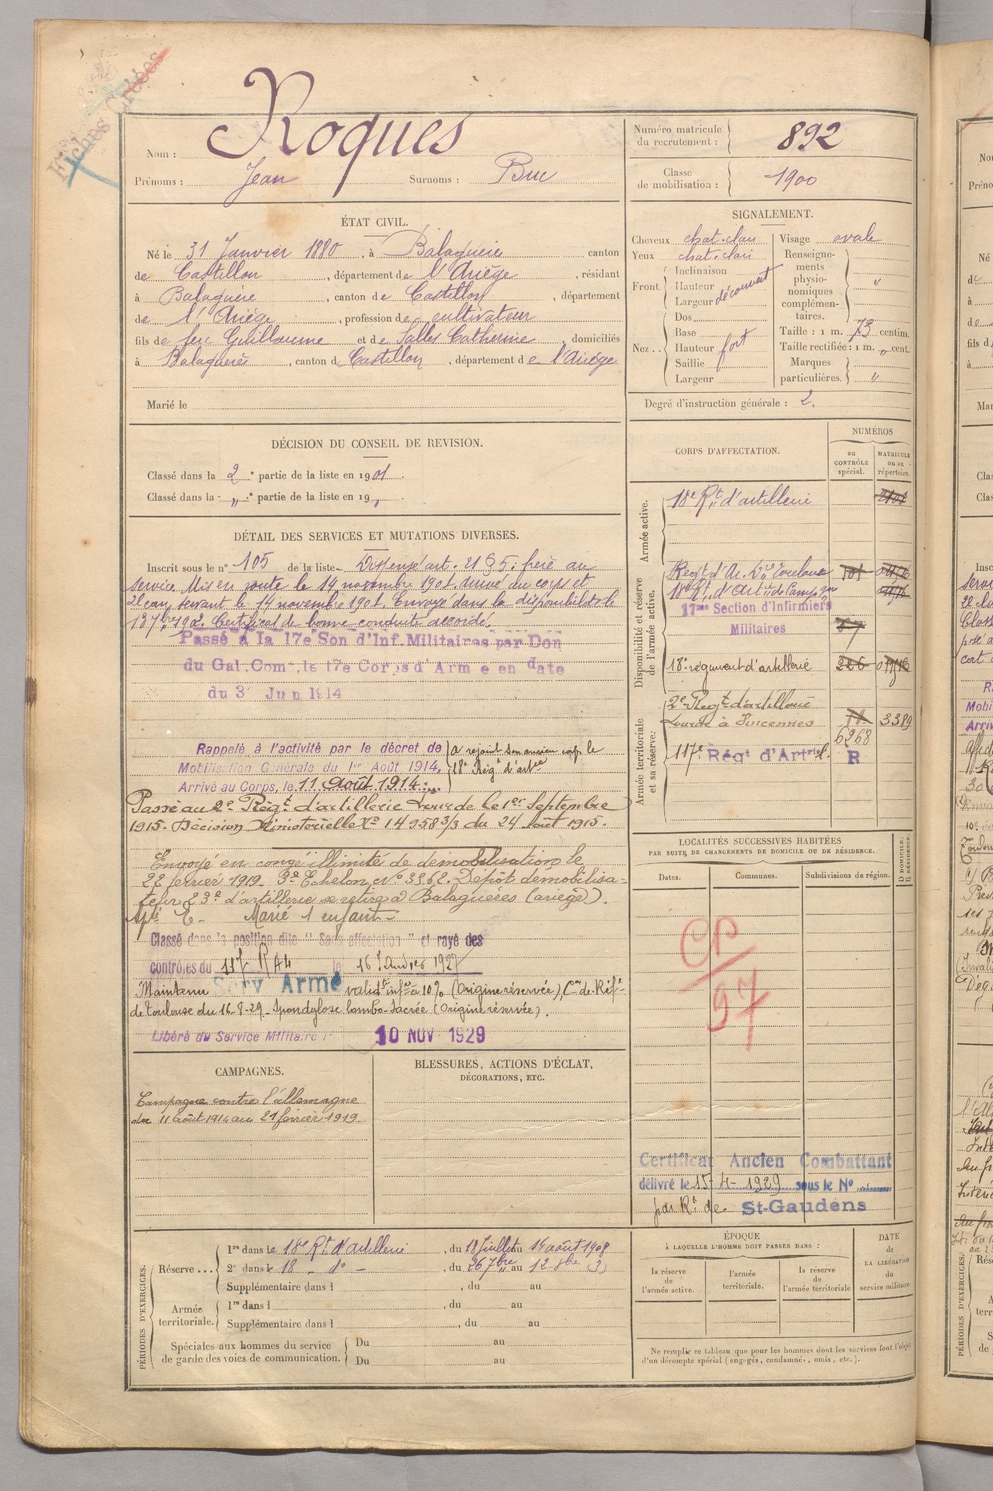 Fiches Créées
Nom : Roques
Prénoms : Jean Surnoms : Buc
Numéro matricule du recrutement : 892
Classe de mobilisation : 1900
ÉTAT CIVIL.
Né le 31 Janvier 1880, à Balaguère canton
de Castillon, département de l'Ariège, résidant
à Balaguère, canton de Castillon, département
de l'Ariège, profession de cultivateur
fils de feu Guillaume et de Salles Catherine, domiciliés
à Balaguères, canton de Castillon, département de l'Ariège
Marié le
SIGNALEMENT.
Cheveux chat. clair Visage ovale
Yeux chat. clair
Front. Inclinaison Hauteur Largeur découvert
Renseignements physionomiques complémentaires. "
Nez.. Dos Base Hauteur Saillie Largeur fort
Taille : 1 m. 73 centim.
Taille rectifiée : 1 m. " cent.
Marques particulières. "
Degré d'instruction générale : 2.
DÉCISION DU CONSEIL DE REVISION.
Classé dans la 2e partie de la liste en 1901.
Classé dans la " e partie de la liste en 19 " .
DÉTAIL DES SERVICES ET MUTATIONS DIVERSES.
Inscrit sous le n° 105 de la liste Dispensé art. 21 § 5. frère au
service. Mis en route le 14 novembre 1901. Arrivé du corps et
2e can. servant le 14 novembre 1901. Envoyé dans la disponibilité le
Certificat de bonne conduite accordé.
Passé à la 17e Son d'Inf. Militaires par Don
du Gal. Comt. le 17e Corps d'Armée en date
du 3 Juin 1914
Rappelé à l'activité par le décret de
Mobilisation Générale du 1er Août 1914,
Arrivé au Corps, le 11 Août 1914
a rejoint son ancien corps le
18e Régt d'artie
Passé au 2e Régt d'artillerie lourde le 1er Septembre
1915. Décision Ministérielle No 14958 3/3 du 24 août 1915.
Envoyé en congé illimité de démobilisation le
22 février 1919. 3e Echelon No 3362. Dépôt démobilisa-
teur 23e d'artillerie se retire à Balaguères (ariège).
Marié 1 enfant
Classé dans la position dite "Sans affectation" et rayé des
contrôles du 117 RA4 le 16 Janvier 1927
Maintenu Serv Armé valide infre à 10% (Origine réservée) Con de Réfe
de Toulouse du 16-8-29. Spondylose lombo-Sacrée (Origine réservée).
Libéré du Service Militaire le 10 NOV 1929
CORPS D'AFFECTATION.
NUMÉROS
au CONTRÔLE spécial.
MATRICULE ou au répertoire.
Armée active.
18e Rt d'artillerie
Disponibilité et réserve de l'armée active.
17me Section d'Infirmiers
Militaires
18e régiment d'artillerie
Armée territoriale et sa réserve.
2e Régt d'artillerie
lourde à Vincennes 3389
6268
117e Régt d'Artrie l. R
LOCALITÉS SUCCESSIVES HABITÉES
PAR SUITE DE CHANGEMENTS DE DOMICILE OU DE RÉSIDENCE.
Dates. Communes. Subdivisions de région.
D DOMICILE.
R RÉSIDENCE.
CP
97
Certificat Ancien Combattant
délivré le 15-4-1929 sous le No
par Rt de St-Gaudens
CAMPAGNES.
Campagne contre l'allemagne
du 11 août 1914 au 21 février 1919.
BLESSURES, ACTIONS D'ÉCLAT,
DÉCORATIONS, ETC.
PÉRIODES D'EXERCICES.
Réserve ...
1re dans le 18e Rt d'artillerie, du 18 Juillet au 14 août 1908
2e dans le 18 - do -, du 26 7bre au 12 8bre
Supplémentaire dans l , du au
Armée territoriale.
1re dans l , du au
Supplémentaire dans l , du au
Spéciales aux hommes du service
de garde des voies de communication.
Du au
Du au
ÉPOQUE
À LAQUELLE L'HOMME DOIT PASSER DANS :
la réserve de l'armée active.
l'armée territoriale.
la réserve de l'armée territoriale
DATE de LA LIBÉRATION du service militaire.
Ne remplir ce tableau que pour les hommes dont les services font l'objet
d'un décompte spécial (engagés, condamnés, omis, etc.).